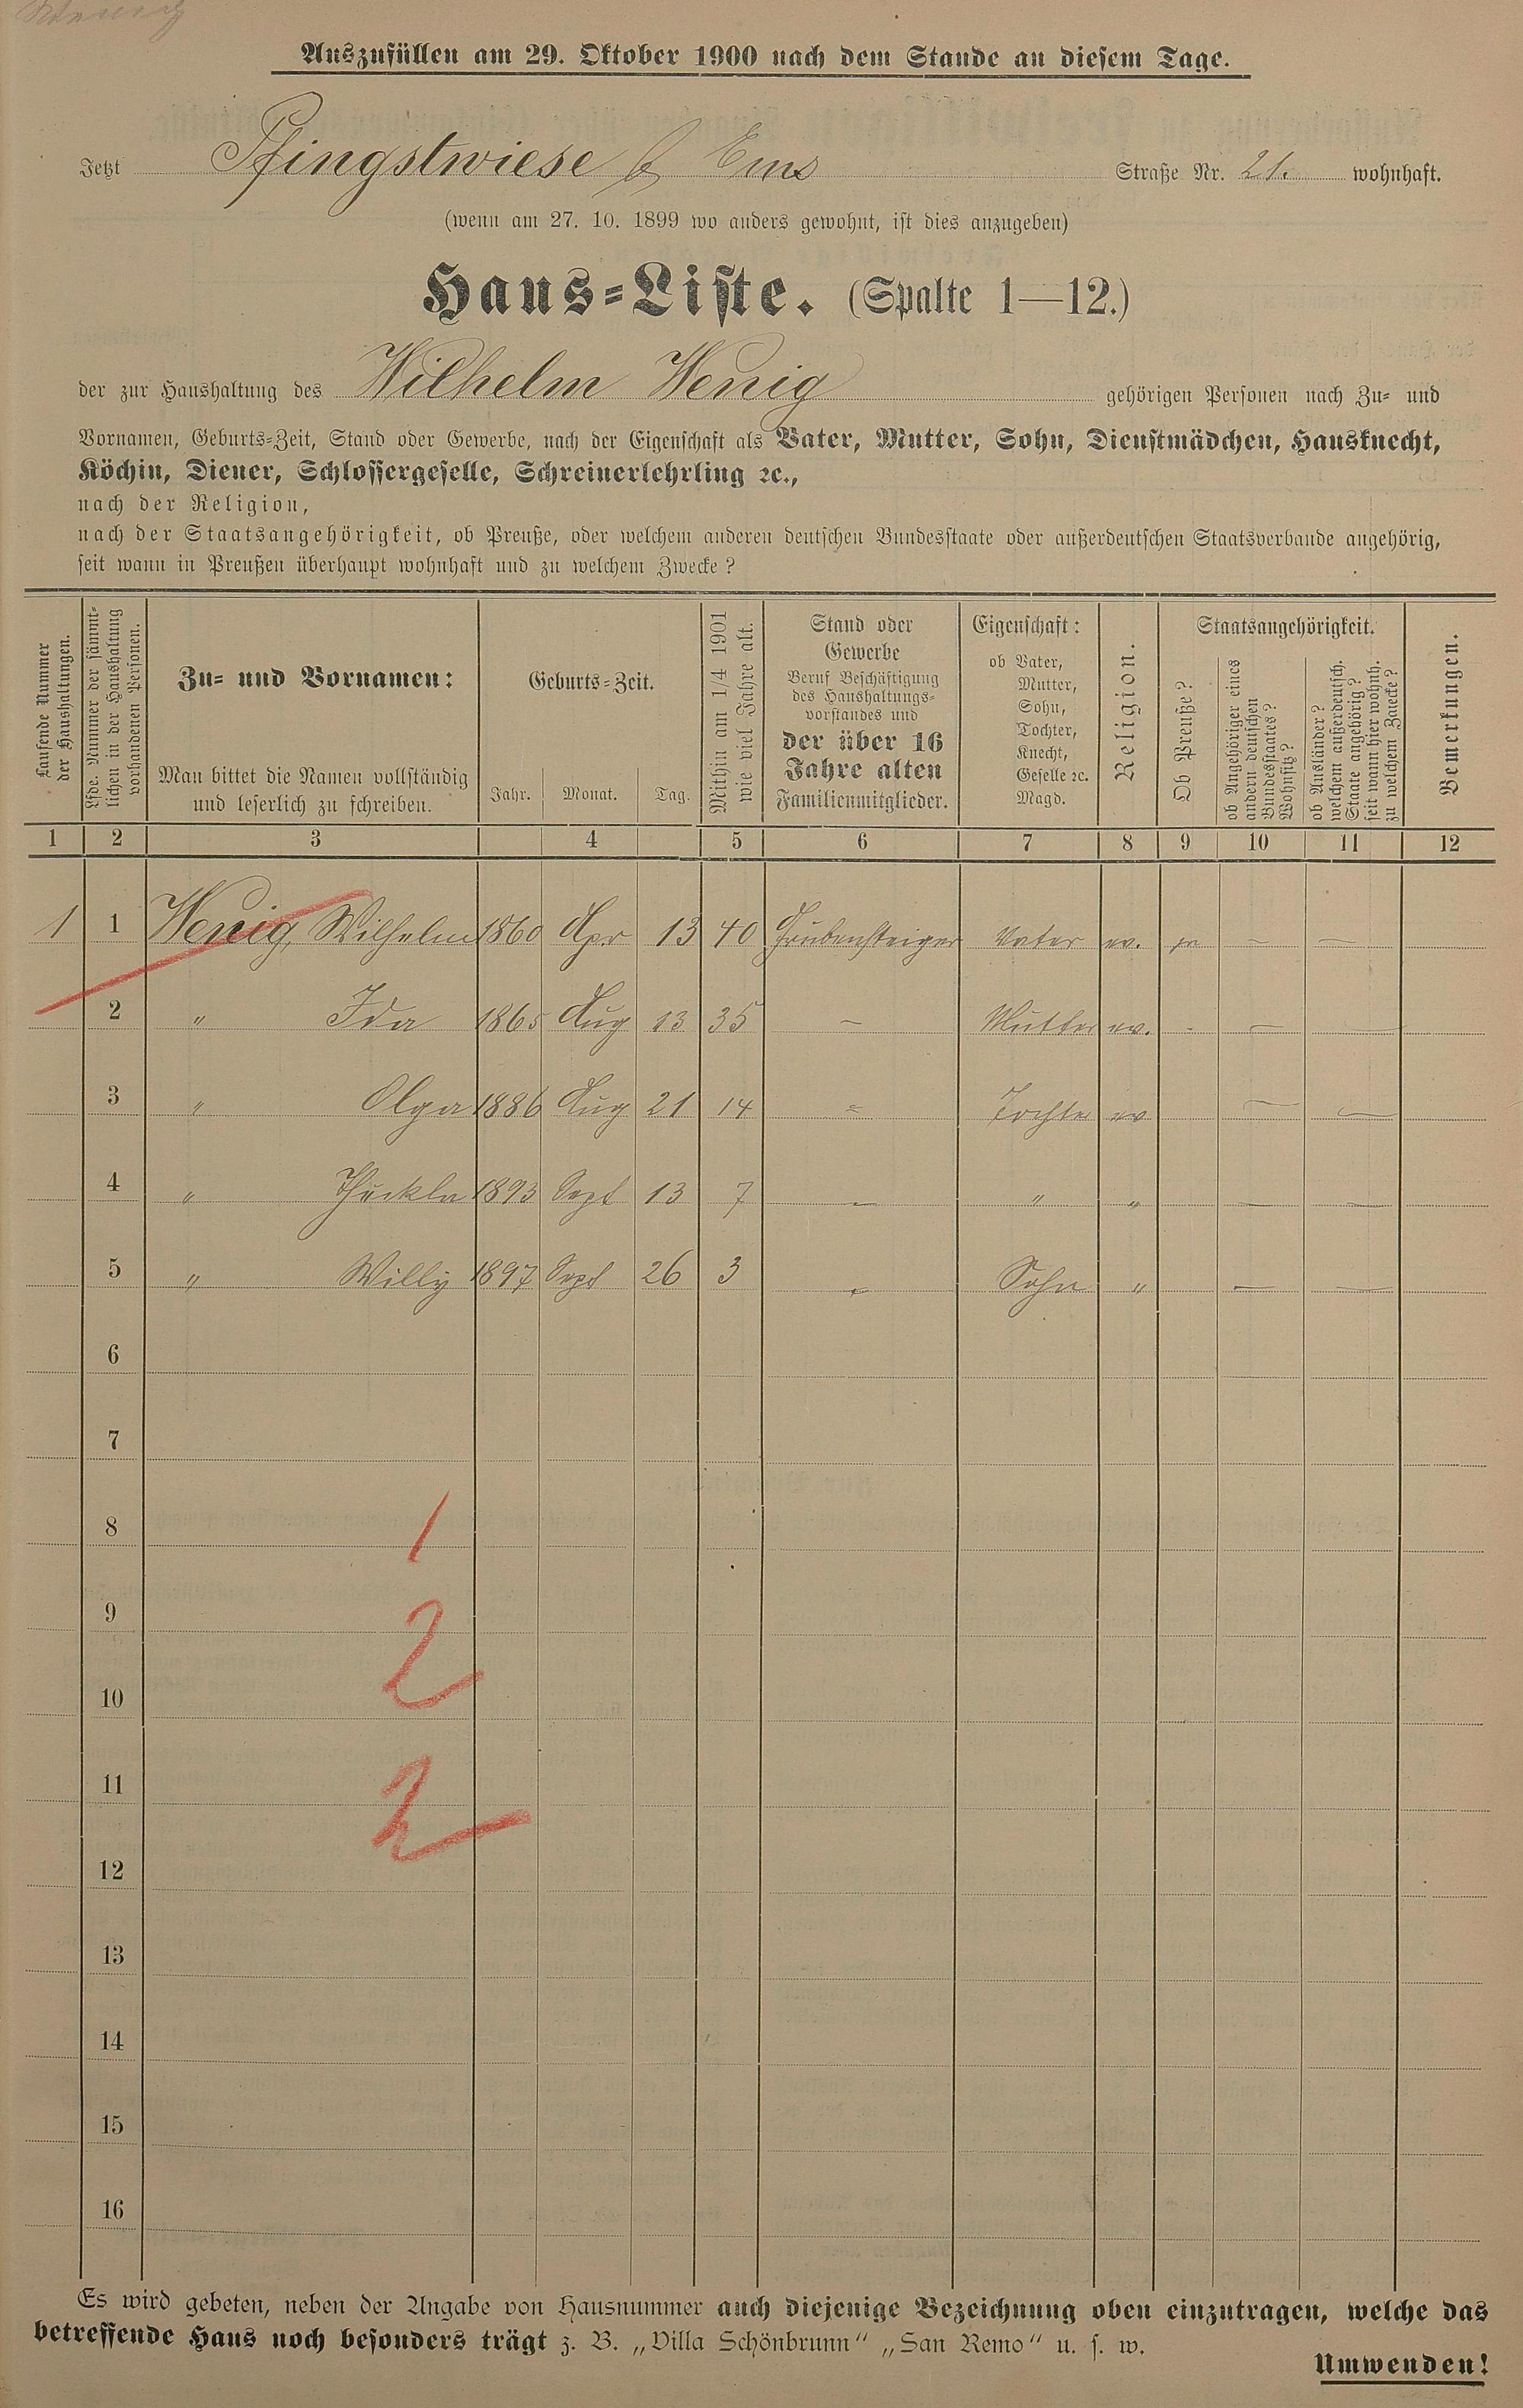 Wenig
Auszufüllen am 29. Oktober 1900 nach dem Stande an diesem Tage.
Jetzt Pfingstwiese b Ems Straße Nr. 21. wohnhaft.
(wenn am 27. 10. 1899 wo anders gewohnt, ist dies anzugeben)
Haus-Liste. (Spalte 1—12.)
der zur Haushaltung des Wilhelm Wenig gehörigen Personen nach Zu- und
Vornamen, Geburts-Zeit, Stand oder Gewerbe, nach der Eigenschaft als Vater, Mutter, Sohn, Dienstmädchen, Hausknecht,
Köchin, Diener, Schlossergeselle, Schreinerlehrling ꝛc.,
nach der Religion,
nach der Staatsangehörigkeit, ob Preuße, oder welchem anderen deutschen Bundesstaate oder außerdeutschen Staatsverbande angehörig,
seit wann in Preußen überhaupt wohnhaft und zu welchem Zwecke?
Laufende Nummer
der Haushaltungen.
Lfde. Nummer der sämmt-
lichen in der Haushaltung
vorhandenen Personen.
Zu- und Vornamen:
Man bittet die Namen vollständig
und leserlich zu schreiben.
Geburts-Zeit.
Jahr. Monat. Tag.
Mithin am 1/4 1901
wie viel Jahre alt.
Stand oder
Gewerbe
Beruf Beschäftigung
des Haushaltungs-
vorstandes und
der über 16
Jahre alten
Familienmitglieder.
Eigenschaft:
ob Vater,
Mutter,
Sohn,
Tochter,
Knecht,
Geselle ꝛc.
Magd.
Religion.
Staatsangehörigkeit.
Ob Preuße?
ob Angehöriger eines
andern deutschen
Bundesstaates?
Wohnsitz?
ob Ausländer?
welchem außerdeutsch.
Staate angehörig?
seit wann hier wohnh.
zu welchem Zwecke?
Bemerkungen.
1 2 3 4 5 6 7 8 9 10 11 12
1 1 Wenig, Wilhelm 1860 Apr 13 40 Grubensteiger Vater ev. ja – —
2 " Ida 1865 Aug 13 35 – Mutter ev. - — —
3 " Olga 1886 Aug 21 14 = Tochter ev — —
4 " Theckla 1893 Sept 13 7 – " " — —
5 " Willy 1897 Sept 26 3 – Sohn " — —
6
7
8 1
9 2
10
11 2
12
13
14
15
16
Es wird gebeten, neben der Angabe von Hausnummer auch diejenige Bezeichnung oben einzutragen, welche das
betreffende Haus noch besonders trägt z. B. „Villa Schönbrunn“ „San Remo“ u. s. w.
Umwenden!